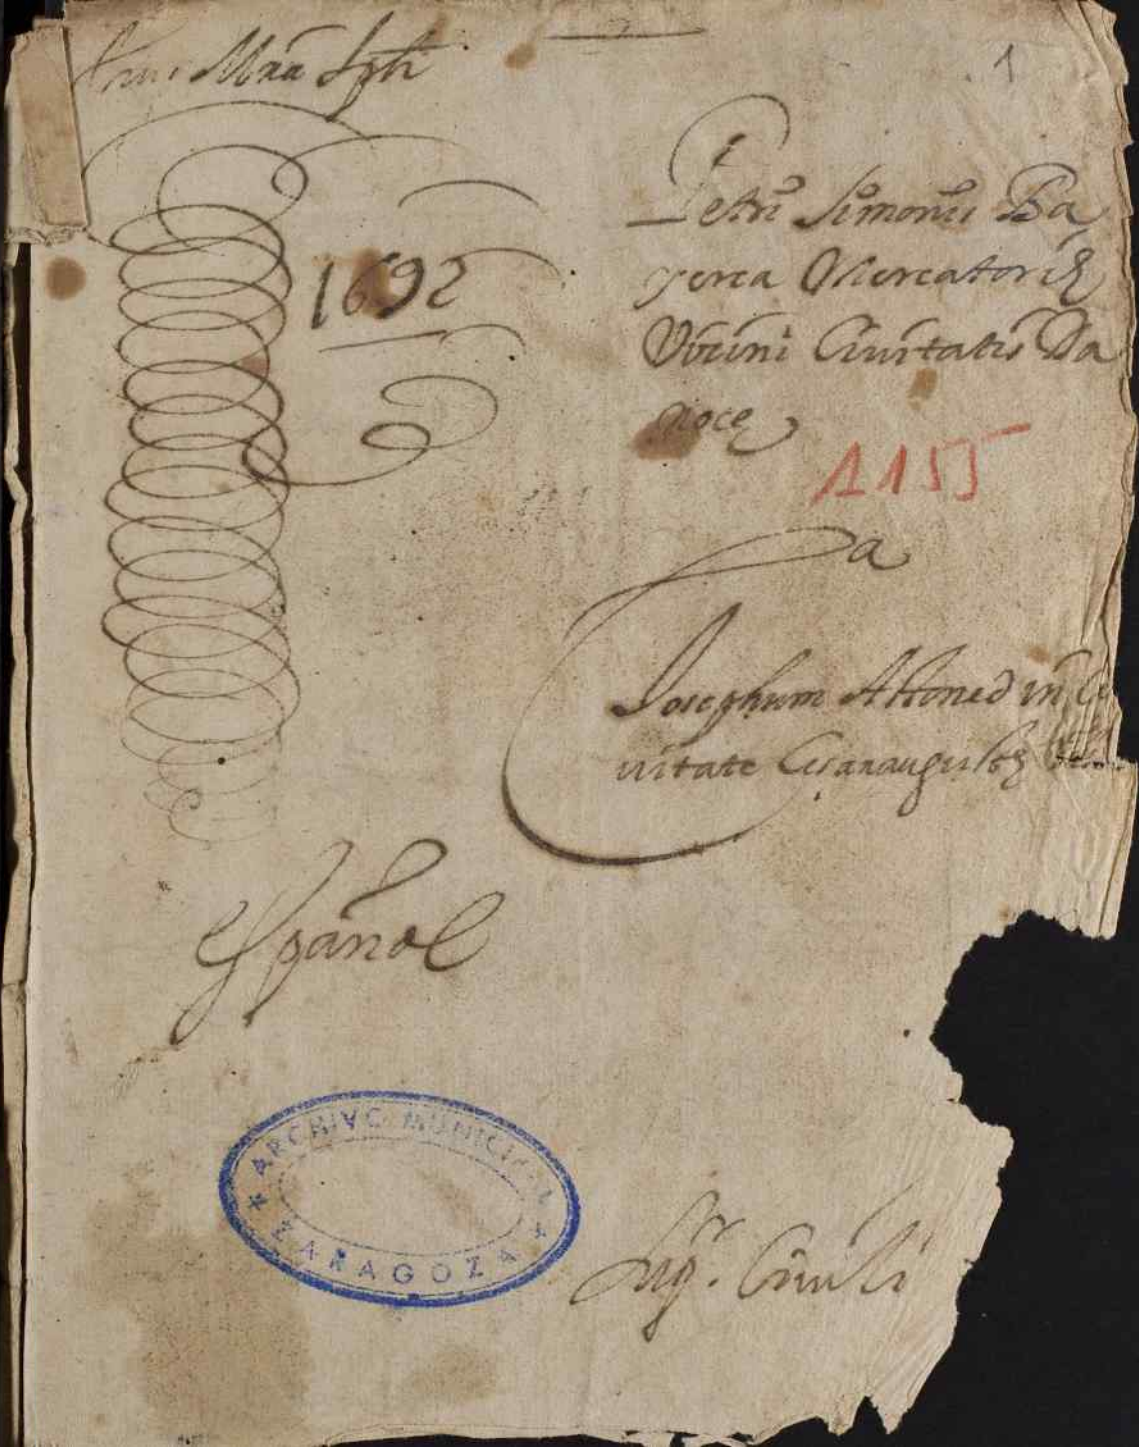 1
1692
Petri Simonis Ba
yerca Mercatoris
Vicini Civitatis Da
roce
1155
Ca
Josephum Attoned in Ci
vitate Cesaraugustę
español
ARCHIVO MUNICIPAL
ZARAGOZA